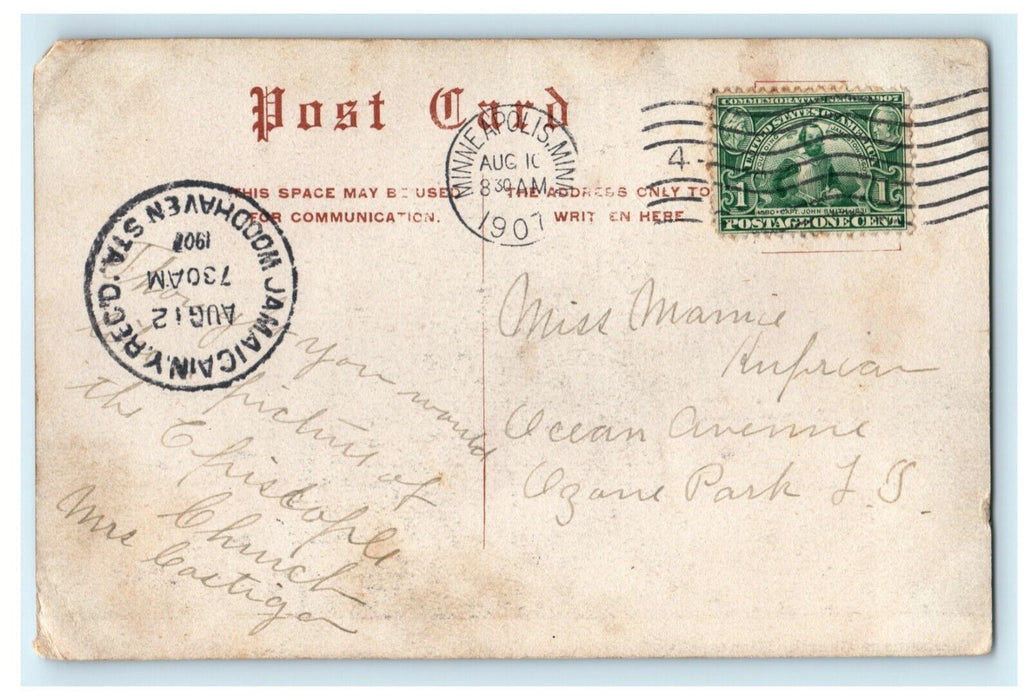 Post Card
THIS SPACE MAY BE USED
FOR COMMUNICATION.
THE ADDRESS ONLY TO
WRIT EN HERE
MINNEAPOLIS, MINN
AUG 10
8 30 AM
1907
4
COMMEMORATIVE SERIES 1907
UNITED STATES OF AMERICA
1 1
1580 • CAPT. JOHN SMITH • 1631
POSTAGE ONE CENT
JAMAICA N.Y. REC'D.
WOODHAVEN STA.
AUG 12
730AM
1907
you would
picture of
the Episcople
Church
Mrs Costigan
Miss Mamie
Ocean Avenue
Ozone Park L I